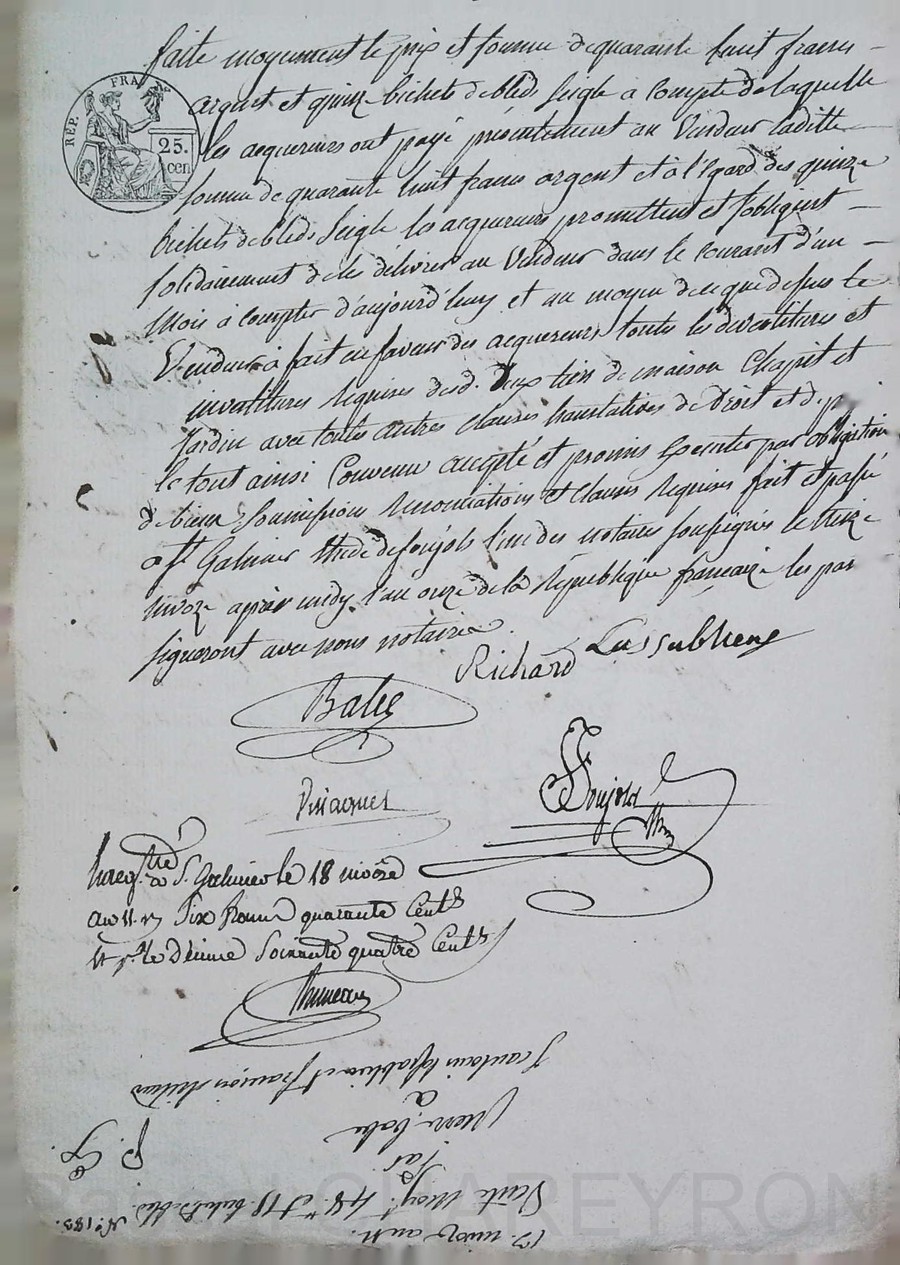 REP. FRA
25.
cen
faite moyennant le prix et somme de quarante huit francs
argent et quinze bichets de bled seigle a compte de laquelle
les acquereurs ont payé presentement au Vendeur laditte
somme de quarante huit francs argent et à l'egard des quinze
bichets de bled seigle les acquereurs promettent et s'obligent
solidairement de les délivrer au Vendeur dans le courant d'un
mois à compter d'aujourd'huy et au moyen de ce que dessus le
Vendeur à fait en faveur des acquereurs toutes les devestitures et
investitures requises desd. deux tiers de maison Chapit et
Jardin avec toutes autres clauses translatives de Droit et de
le tout ainsi Convenu accepté et promis Executer par obligation
de biens Soumissions Renonciations et Clauses requises fait et passé
a St. Galmier Etude de Soujols l'un des notaires soussignés le treize
nivoze après midy l'an onze de la République francaize les par
signeront avec nous notaires
Richard
Balie
Soujols
Enregtré à St. Galmier le 18 nivôse
an 11. r. Six francs quarante Cents
et pr. le Décime Soixante quatre Cents
13. nivoz an 11.
Vente moyt. 48. et 15. bichets bled No. 183.
Par
Pierre
a
p. Ge.